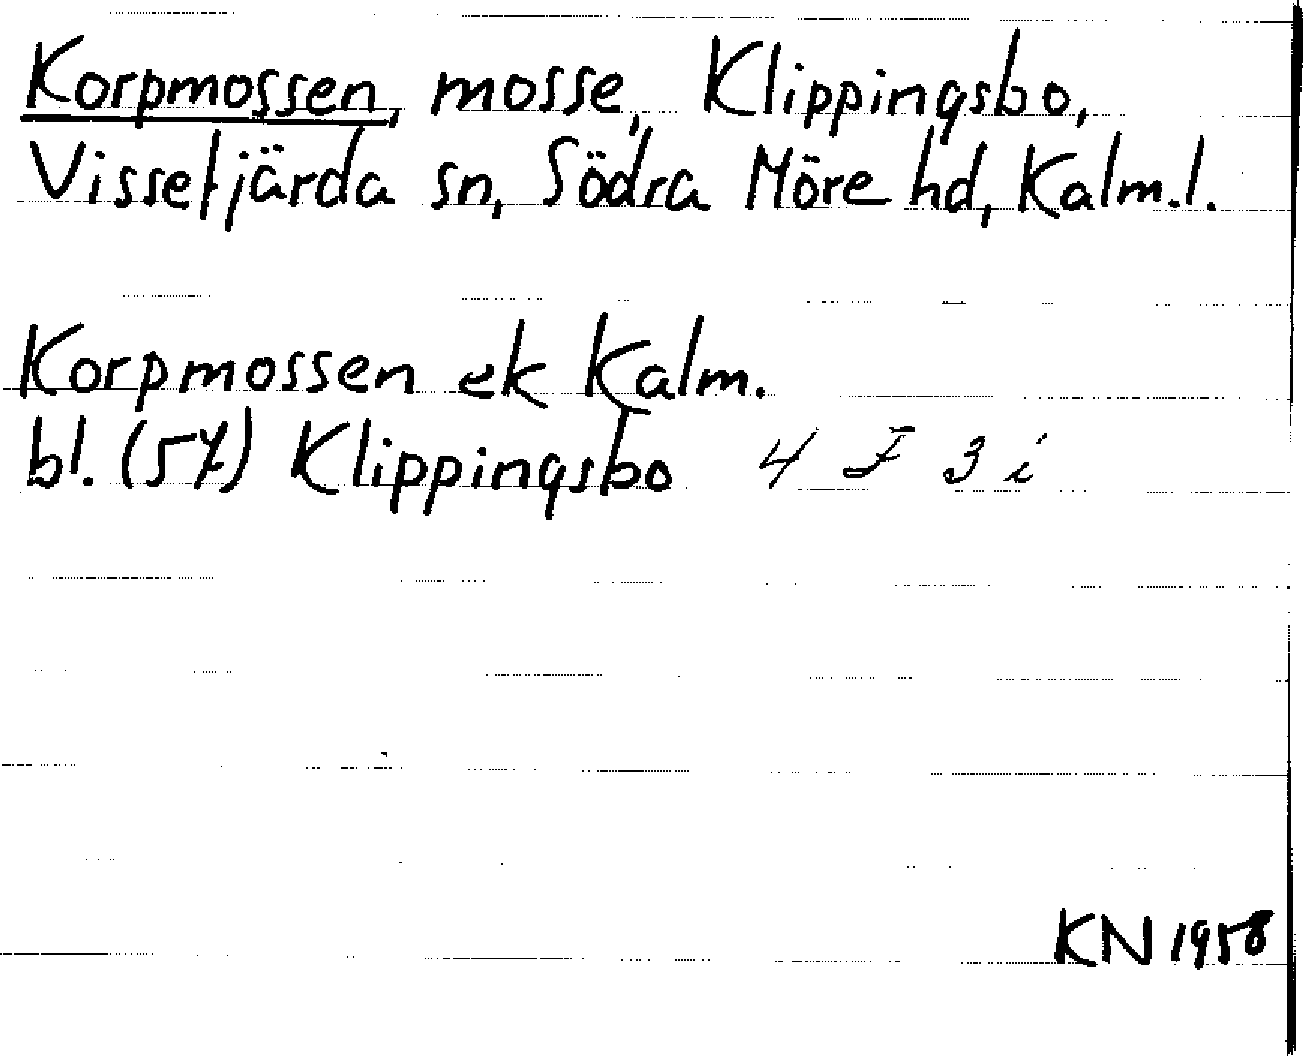 Korpmossen, mosse, Klippingsbo,
Vissefjärda sn, Södra Möre hd, Kalm.l.
Korpmossen ek Kalm.
bl. (57) Klippingsbo 4 F 3 i
KN 1958